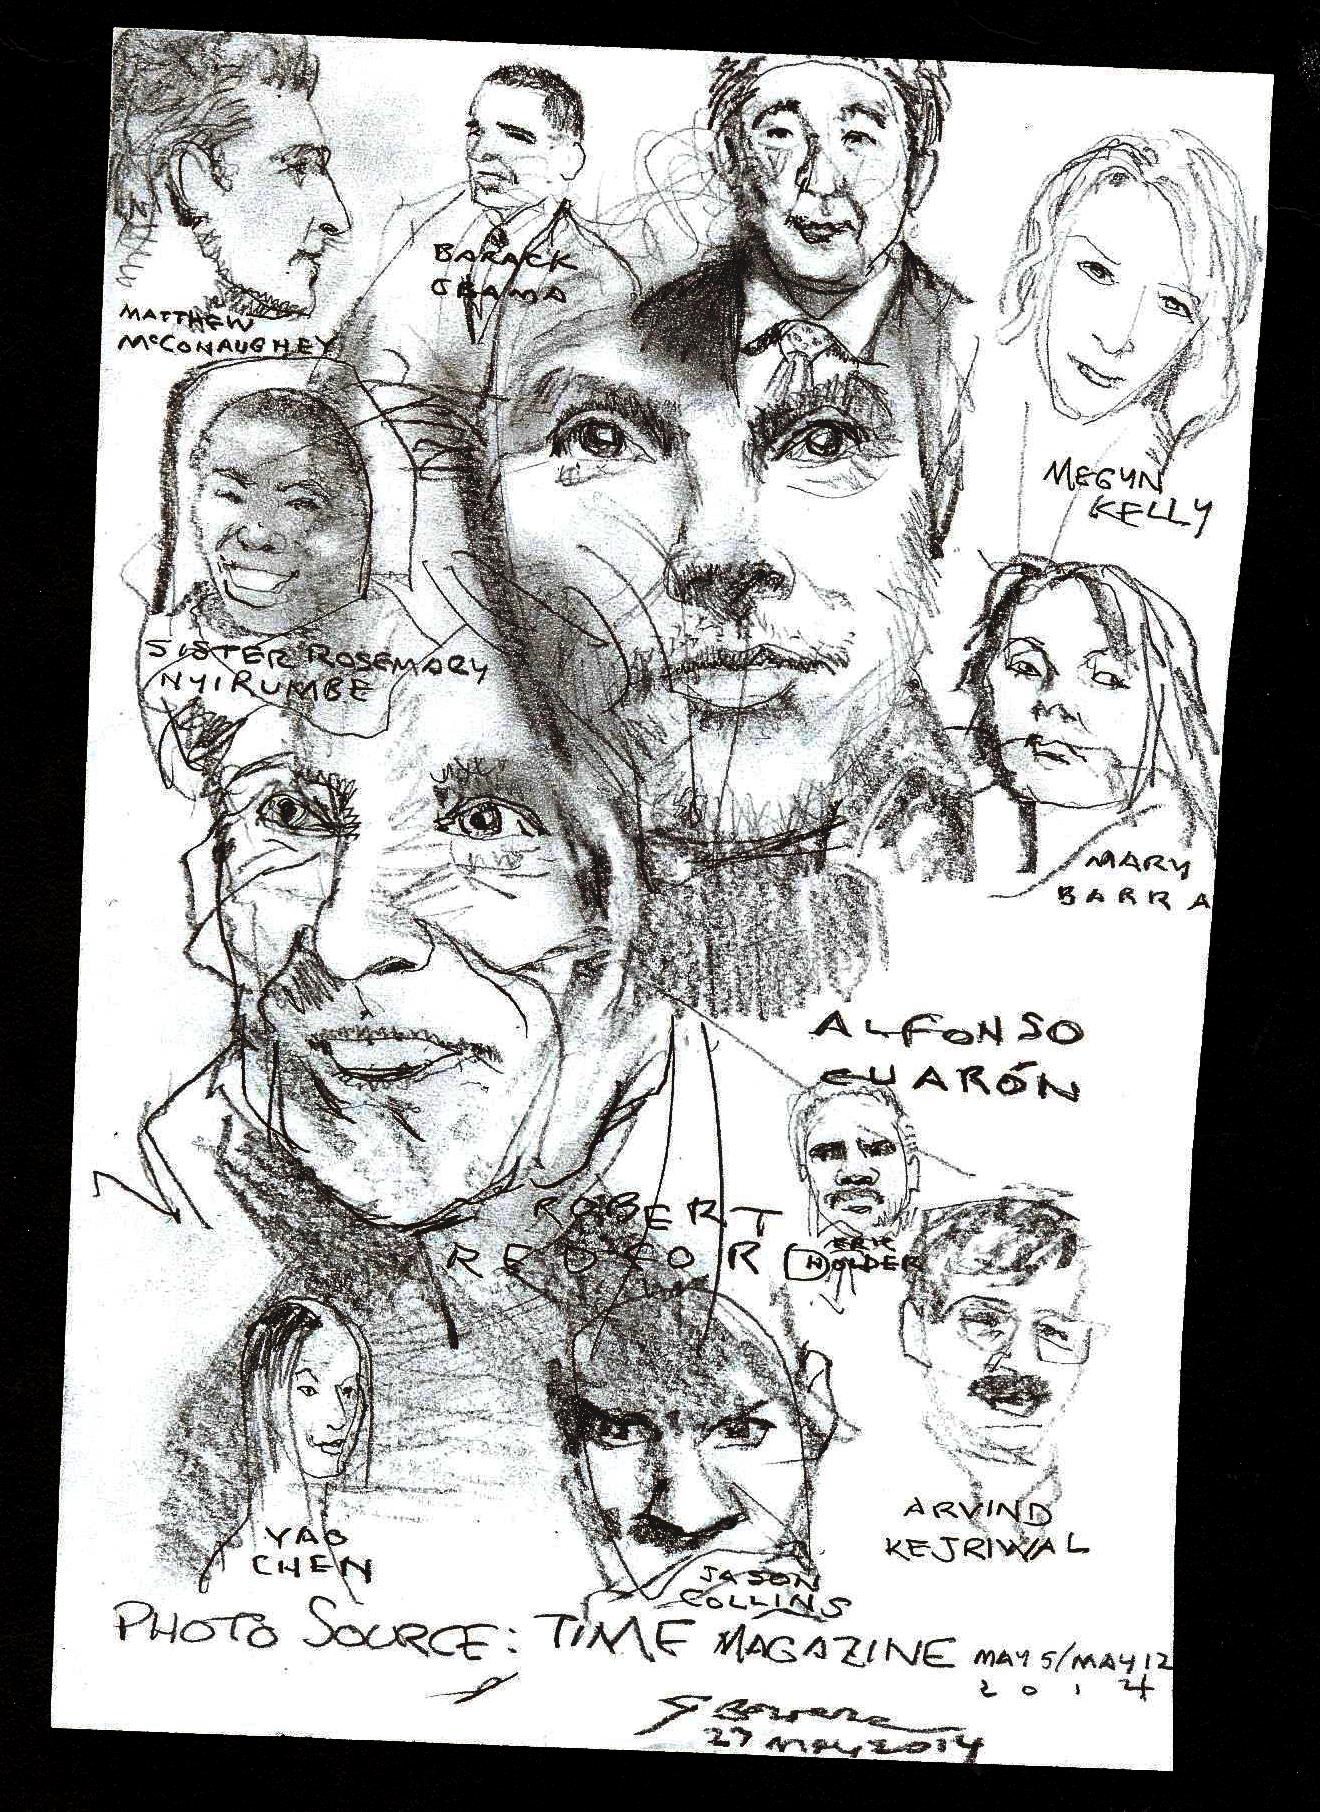 BARACK
OBAMA
MATTHEW
McCONAUGHEY
MEGYN
KELLY
SISTER ROSEMARY
NYIRUMBE
MARY
BARRA
ALFONSO
CUARÓN
ROBERT
REDFORD
ERIC
HOLDER
ARVIND
KEJRIWAL
YAO
CHEN
JASON
COLLINS
PHOTO SOURCE: TIME MAGAZINE MAY 5/MAY 12
2014
27 MAY 2014